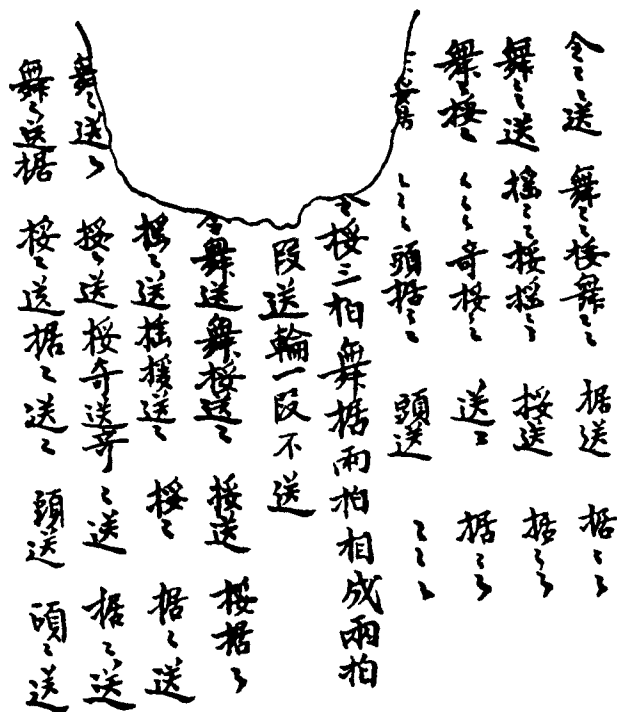 令〻〻送 舞〻挼舞〻〻 据送 据〻〻
舞〻送 摇〻〻挼摇〻 挼送 据〻〻
舞〻挼〻 〻〻〻奇挼〻 送〻 据〻〻
〻〻〻頭据〻〻 頭送 〻〻〻
令挼三拍舞据兩拍相成兩拍
段送輪一段不送
令舞送舞挼送〻 挼送 挼据〻
摇〻送摇挼送〻 挼〻 据〻送
舞〻送〻 挼〻送挼奇送奇〻送 据〻送
舞〻送据 挼〻送据〻送〻 頭送 頭〻送